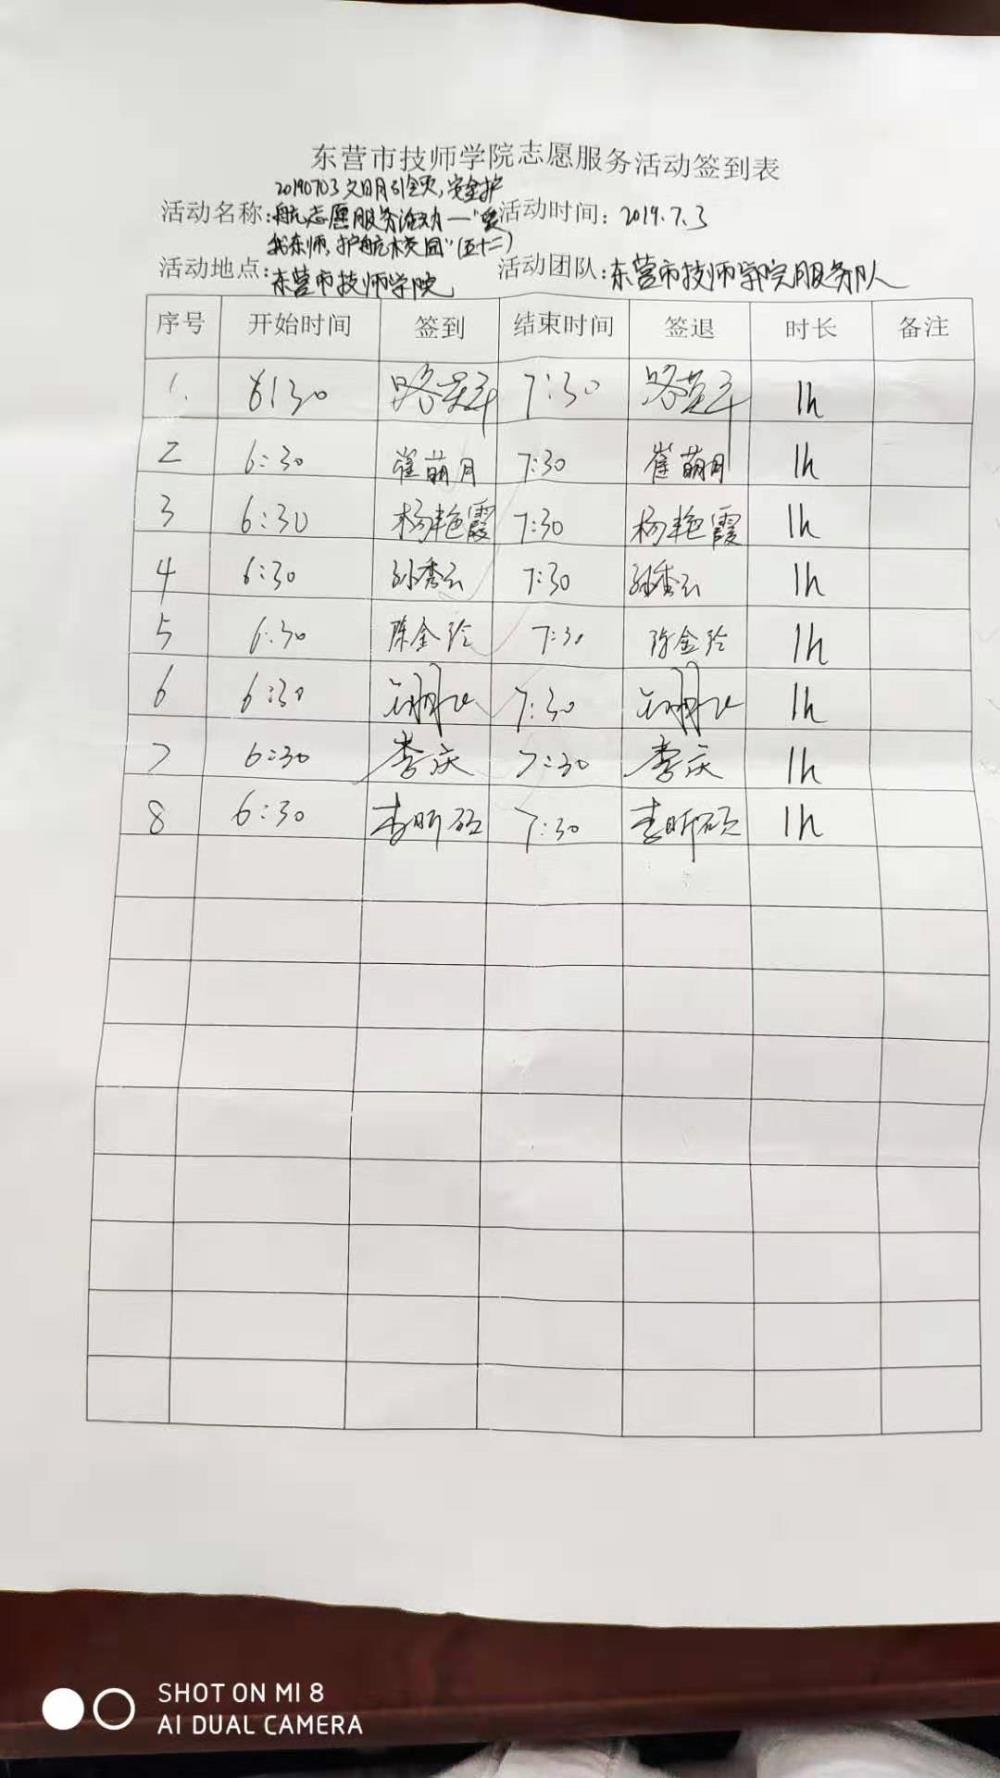 东营市技师学院志愿服务活动签到表
20190703文明引领,安全护
活动名称:航志愿服务活动一"爱 活动时间:2019.7.3
我东师,护航校园"(五十二)
活动地点:东营市技师学院 活动团队:东营市技师学院服务队
序号 开始时间 签到 结束时间 签退 时长 备注
1. 6:30 7:30 1h
2 6:30 崔萌月 7:30 崔萌月 1h
3 6:30 杨艳霞 7:30 杨艳霞 1h
4 6:30 孙秀云 7:30 孙秀云 1h
5 6:30 陈金玲 7:30 陈金玲 1h
6 6:30 7:30 1h
7 6:30 李庆 7:30 李庆 1h
8 6:30 李昕硕 7:30 李昕硕 1h
SHOT ON MI 8
AI DUAL CAMERA